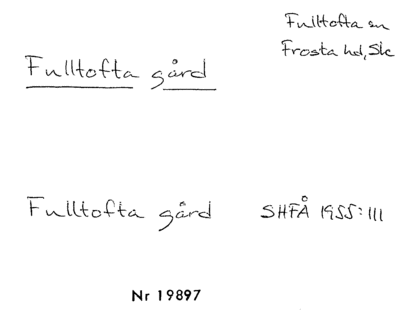 Fulltofta sn
Frosta hd, Sk
Fulltofta gård
Fulltofta gård SHFÅ 1955:111
Nr 19897